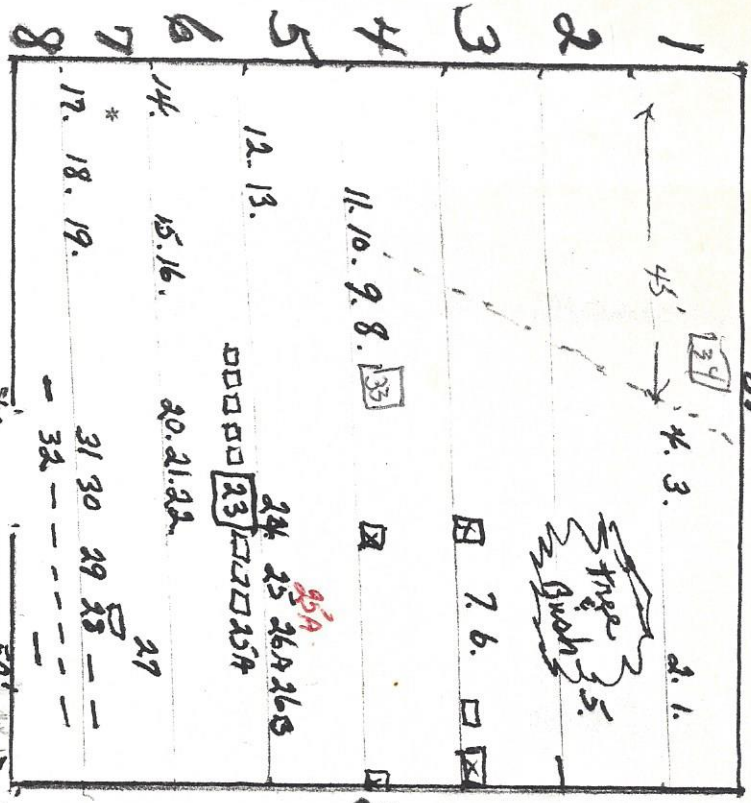 1 2 3 4 5 6 7 8
45' 34
4. 3. 2. 1.
tree & Bush 5.
7. 6.
11. 10. 9. 8. 33
12. 13. 24 25 26A 26B
25A
23 25A
14. 15. 16. 20. 21. 22. 27
*
17. 18. 19. 31 30 29 28 — —
— 32 — — — — — —